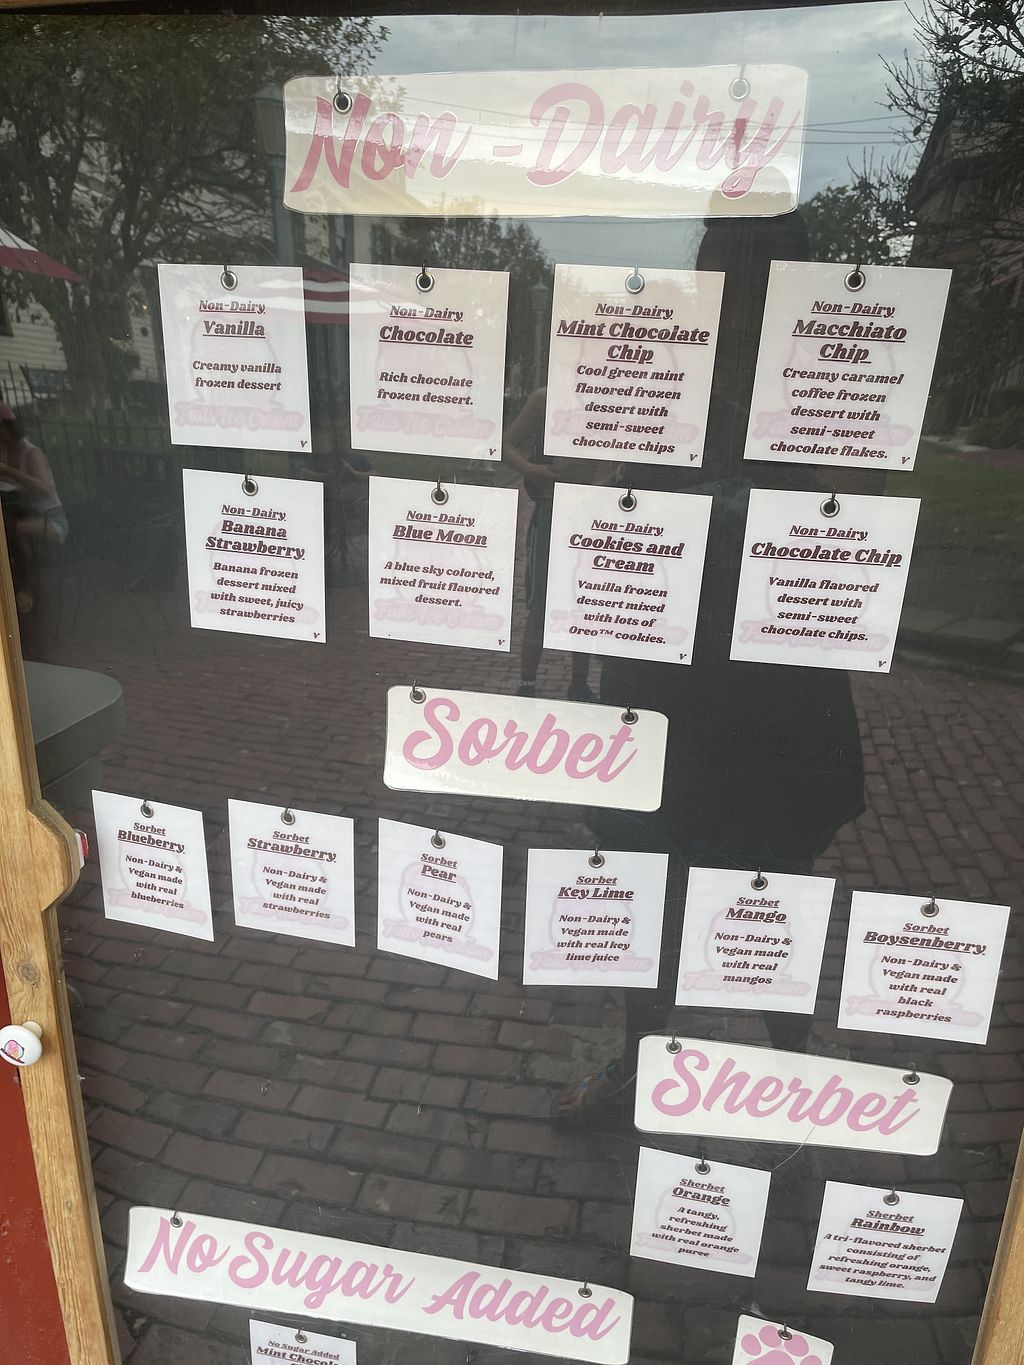 Non-Dairy
Non-Dairy
Vanilla
Creamy vanilla
frozen dessert
V
Non-Dairy
Chocolate
Rich chocolate
frozen dessert.
V
Non-Dairy
Mint Chocolate
Chip
Cool green mint
flavored frozen
dessert with
semi-sweet
chocolate chips
V
Non-Dairy
Macchiato
Chip
Creamy caramel
coffee frozen
dessert with
semi-sweet
chocolate flakes.
V
Non-Dairy
Banana
Strawberry
Banana frozen
dessert mixed
with sweet, juicy
strawberries
V
Non-Dairy
Blue Moon
A blue sky colored,
mixed fruit flavored
dessert.
V
Non-Dairy
Cookies and
Cream
Vanilla frozen
dessert mixed
with lots of
Oreo™ cookies.
V
Non-Dairy
Chocolate Chip
Vanilla flavored
dessert with
semi-sweet
chocolate chips.
V
Sorbet
Sorbet
Blueberry
Non-Dairy &
Vegan made
with real
blueberries
Sorbet
Strawberry
Non-Dairy &
Vegan made
with real
strawberries
Sorbet
Pear
Non-Dairy &
Vegan made
with real
pears
Sorbet
Key Lime
Non-Dairy &
Vegan made
with real key
lime juice
Sorbet
Mango
Non-Dairy &
Vegan made
with real
mangos
Sorbet
Boysenberry
Non-Dairy &
Vegan made
with real
black
raspberries
Sherbet
Sherbet
Orange
A tangy,
refreshing
sherbet made
with real orange
puree
Sherbet
Rainbow
A tri-flavored sherbet
consisting of
refreshing orange,
sweet raspberry, and
tangy lime.
No Sugar Added
No Sugar Added
Mint Chocol